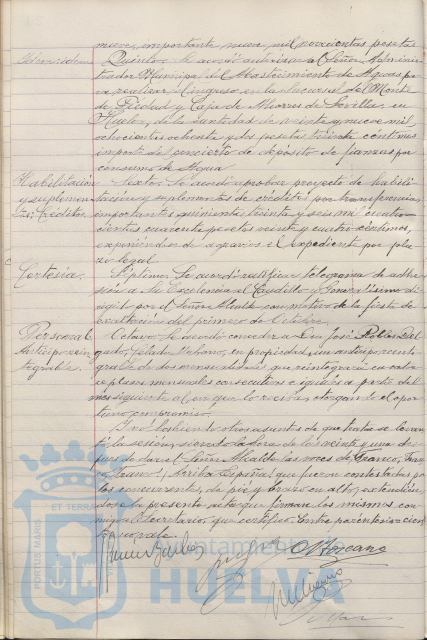 nueve, importante nueve mil novecientas pesetas
Idem idem Quinto: Se acordó autorizar al Señor Adminis-
trador Municipal del Abastecimiento de Aguas, pa-
ra realizar el ingreso en la Sucursal del Monte
de Piedad y Caja de Ahorros de Sevilla, en
Huelva, de la cantidad de veinte y nueve mil
ochocientas ochenta y dos pesetas treinta céntimos
importe del concierto de depósito de fianzas por
consumo de Agua.
Habilitación
y suplemen-
tos; Creditos.
Sexto: Se acordó aprobar proyecto de habili-
tación y suplementos de créditos por transferencia,
importantes quinientas treinta y seis mil cuatro-
cientas cuarenta pesetas veinte y cuatro céntimos,
exponiéndose de agravios el expediente por pla-
zo legal
Cortesía. Séptimo: Se acordó ratificar telegrama de adhe-
sión a Su Excelencia el Caudillo y Generalísimo di-
rigido por el Señor Alcalde con motivo de la fiesta de
exaltación del primero de Octubre.
Personal
Anticipo rein-
tegrable.
Octavo: Se acordó conceder a Don José Robles Del-
gado, Celador Urbano, en propiedad, un anticipo reinte-
grable de dos mensualidades que reintegrará en cator-
ce plazos mensuales consecutivos e iguales a partir del
mes siguiente al en que lo reciba, otorgando el opor-
tuno compromiso.
Y no habiendo otros asuntos de que tratar se levan-
tó la sesión, siendo la hora de las veinte y una des-
pués de dar el Señor Alcalde las voces de ¡Franco, Fran-
co, Franco! ¡Arriba España! que fueron contestadas por
los concurrentes, de pié y brazo en alto, extendién-
dose la presente acta que firman los mismos con-
migo el Secretario, que certifico. Entre parentesis =
no vale.
PORTUS MARIS ET TERRAE
Ayuntamiento de
HUELVA